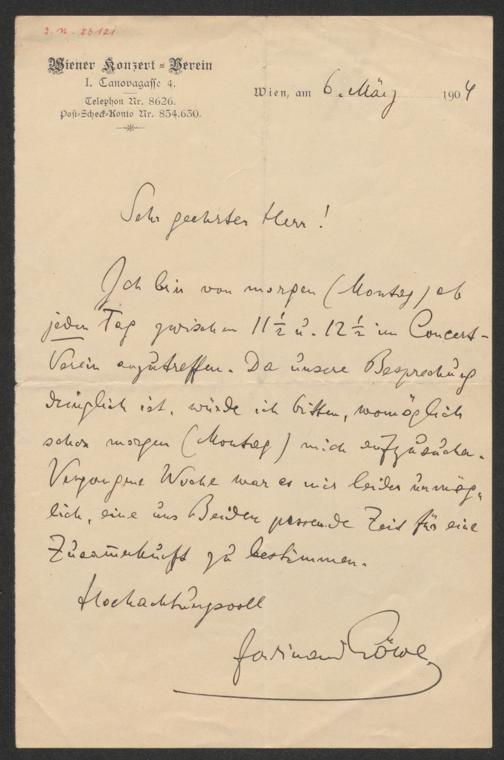 J. N. 23121
Wiener Konzert-Verein
I. Canovagasse 4.
Telephon Nr. 8626.
Post-Scheck-Konto Nr. 834.630.
Wien, am 6. März 1904
Sehr geehrter Herr!
Ich bin von morgen (Montag) ab
jeden Tag zwischen 11 ½ u. 12 ½ im Concert-
Verein anzutreffen. Da unsere Besprechung
dringlich ist, würde ich bitten, womöglich
schon morgen (Montag) mich aufzusuchen.
Vergangene Woche war es mir leider unmög-
lich, eine uns Beiden passende Zeit für eine
Zusammenkunft zu bestimmen.
Hochachtungsvoll
Ferdinand Löwe